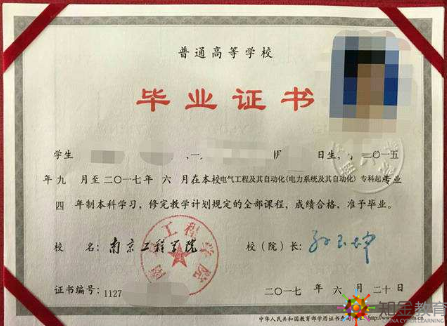 普通高等学校
毕业证书
学生 日生, 二〇一五
年九月至二〇一七年 六 月在本校电气工程及其自动化(电力系统及其自动化) 专科起 业
四 年制本科学习,修完教学计划规定的全部课程,成绩合格,准予毕业。
校 名: 南京工程学院 校(院)长:
证书编号: 1127 二〇一七 年 六 月 二十 日
中华人民共和国教育部学历证书
知金教育